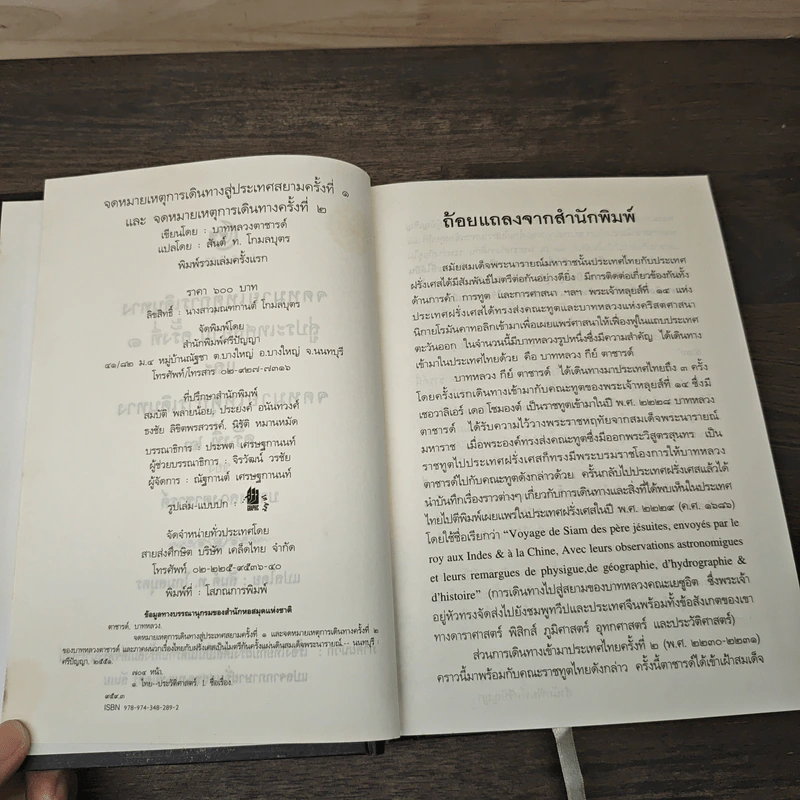 จดหมายเหตุการเดินทางสู่ประเทศสยามครั้งที่ ๑
และ จดหมายเหตุการเดินทางครั้งที่ ๒
เขียนโดย : บาทหลวงตาชารด์
แปลโดย : สันต์ ท. โกมลบุตร
พิมพ์รวมเล่มครั้งแรก
ราคา ๖๐๐ บาท
ลิขสิทธิ์ : นางสาวมณฑกานต์ โกมลบุตร
จัดพิมพ์โดย
สำนักพิมพ์ศรีปัญญา
๔๑/๘๒ ม.๔ หมู่บ้านณัฐชา ต.บางใหญ่ อ.บางใหญ่ จ.นนทบุรี
โทรศัพท์/โทรสาร ๐๒-๙๒๗-๗๓๑๖
ที่ปรึกษาสำนักพิมพ์
สมบัติ พลายน้อย, ประยงค์ อนันทวงศ์
ธงชัย ลิขิตพรสวรรค์, นิรัติ หมานหมัด
บรรณาธิการ : ประพต เศรษฐกานนท์
ผู้ช่วยบรรณาธิการ : จิรวัฒน์ วรชัย
ผู้จัดการ : ณัฐกานต์ เศรษฐกานนท์
รูปเล่ม-แบบปก :
จัดจำหน่ายทั่วประเทศโดย
สายส่งศึกษิต บริษัท เคล็ดไทย จำกัด
โทรศัพท์ ๐๒-๒๒๕-๙๕๓๖-๔๐
พิมพ์ที่ : โสภณการพิมพ์
ข้อมูลทางบรรณานุกรมของสำนักหอสมุดแห่งชาติ
ตาชารด์, บาทหลวง.
จดหมายเหตุการเดินทางสู่ประเทศสยามครั้งที่ ๑ และจดหมายเหตุการเดินทางครั้งที่ ๒
ของบาทหลวงตาชารด์ และภาคผนวกเรื่องไทยกับฝรั่งเศสเป็นไมตรีกันครั้งแผ่นดินสมเด็จพระนารายณ์.-- นนทบุรี :
ศรีปัญญา, ๒๕๕๑.
๗๐๔ หน้า.
๑. ไทย--ประวัติศาสตร์. I. ชื่อเรื่อง.
๙๕๙.๓
ISBN 978-974-348-289-2
ถ้อยแถลงจากสำนักพิมพ์
สมัยสมเด็จพระนารายณ์มหาราชนั้นประเทศไทยกับประเทศ
ฝรั่งเศสได้มีสัมพันธ์ไมตรีต่อกันอย่างดียิ่ง มีการติดต่อเกี่ยวข้องกันทั้ง
ด้านการค้า การทูต และการศาสนา ฯลฯ พระเจ้าหลุยส์ที่ ๑๔ แห่ง
ประเทศฝรั่งเศสได้ทรงส่งคณะทูตและบาทหลวงแห่งคริสตศาสนา
นิกายโรมันคาทอลิกเข้ามาเพื่อเผยแพร่ศาสนาให้เฟื่องฟูในแถบประเทศ
ตะวันออก ในจำนวนนี้มีบาทหลวงรูปหนึ่งซึ่งมีความสำคัญ ได้เดินทาง
เข้ามาในประเทศไทยด้วย คือ บาทหลวง กีย์ ตาชารด์
บาทหลวง กีย์ ตาชารด์ ได้เดินทางมาประเทศไทยถึง ๓ ครั้ง
โดยครั้งแรกเดินทางเข้ามากับคณะทูตของพระเจ้าหลุยส์ที่ ๑๔ ซึ่งมี
เชอวาลิเอร์ เดอ โชมองต์ เป็นราชทูตเข้ามาในปี พ.ศ. ๒๒๒๘ บาทหลวง
ตาชารด์ ได้รับความไว้วางพระราชหฤทัยจากสมเด็จพระนารายณ์
มหาราช เมื่อพระองค์ทรงส่งคณะทูตซึ่งมีออกพระวิสูตรสุนทร เป็น
ราชทูตไปประเทศฝรั่งเศสก็ทรงมีพระบรมราชโองการให้บาทหลวง
ตาชารด์ไปกับคณะทูตดังกล่าวด้วย ครั้นกลับไปประเทศฝรั่งเศสแล้วได้
นำบันทึกเรื่องราวต่างๆ เกี่ยวกับการเดินทางและสิ่งที่ได้พบเห็นในประเทศ
ไทยไปตีพิมพ์เผยแพร่ในประเทศฝรั่งเศสในปี พ.ศ. ๒๒๒๙ (ค.ศ. ๑๖๘๖)
โดยใช้ชื่อเรียกว่า “Voyage de Siam des père jésuites, envoyés par le
roy aux Indes & à la Chine, Avec leurs observations astronomigues
et leurs remargues de physigue,de géographie, d’hydrographie &
d’histoire” (การเดินทางไปสู่สยามของบาทหลวงคณะเยซูอิต ซึ่งพระเจ้า
อยู่หัวทรงจัดส่งไปยังชมพูทวีปและประเทศจีนพร้อมทั้งข้อสังเกตของเขา
ทางดาราศาสตร์ ฟิสิกส์ ภูมิศาสตร์ อุทกศาสตร์ และประวัติศาสตร์)
ส่วนการเดินทางเข้ามาประเทศไทยครั้งที่ ๒ (พ.ศ. ๒๒๓๐-๒๒๓๑)
คราวนี้มาพร้อมกับคณะราชทูตไทยดังกล่าว ครั้งนี้ตาชารด์ได้เข้าเฝ้าสมเด็จ